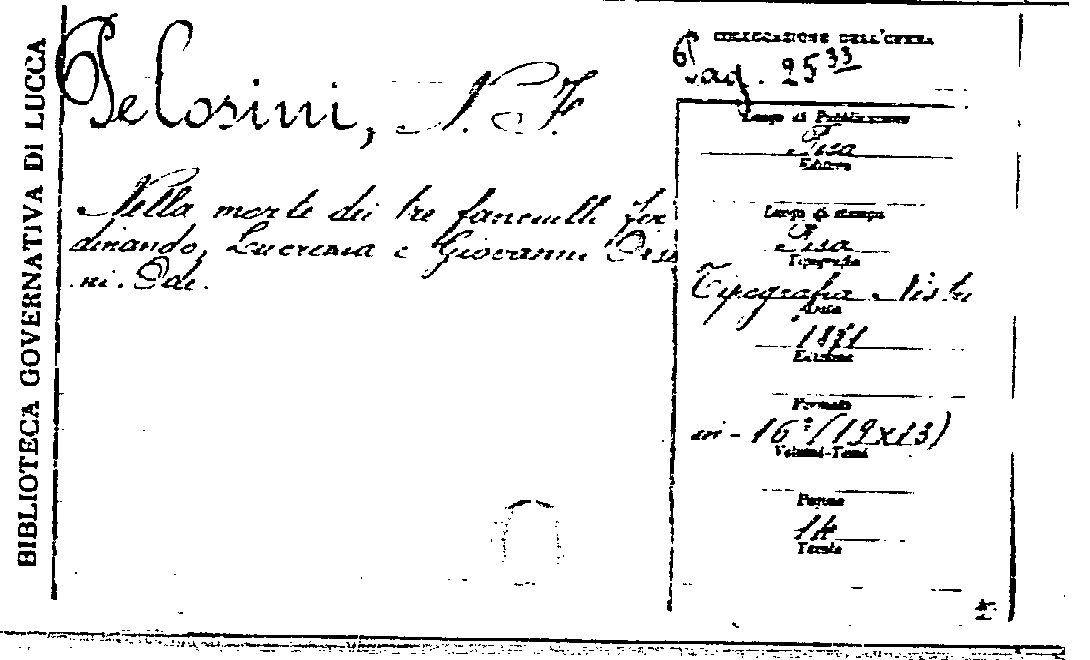 BIBLIOTECA GOVERNATIVA DI LUCCA
Pelosini, N. F.
Nella morte dei tre fanciulli Fer
dinando, Lucrezia e Giovanni
ni. Ode.
COLLOCAZIONE DELL'OPERA
Pag. 25 33
Luogo di Pubblicazione
Pisa
Editore
Luogo di stampa
Pisa
Tipografia
Tipografia Nistri
Data
1871
Edizione
Formato
in-16°(19x13)
Volumi-Tomi
Pagine
14
Tavole